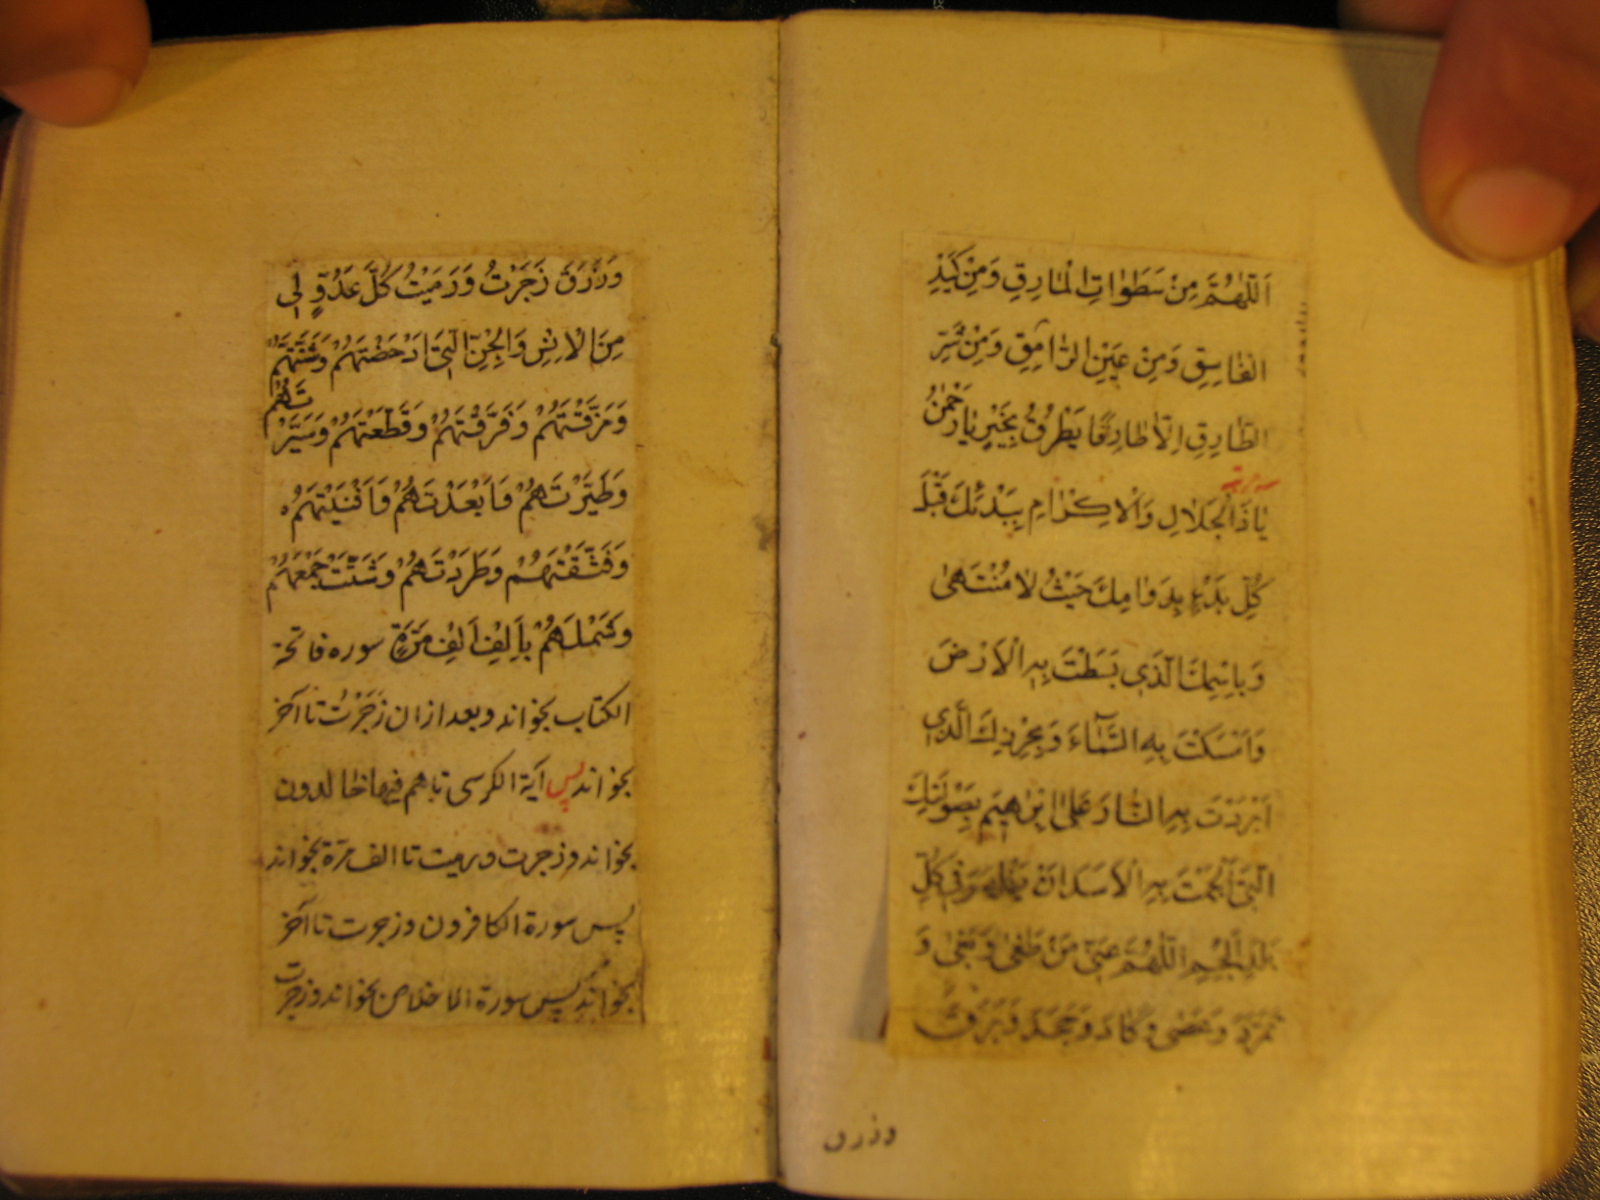 اَللّٰهُمَّ مِنْ سَطَوٰاتِ الْمٰارِقِ وَمِنْ كَيْدِ
الفٰاسِقِ وَمِنْ عَيْنِ الرّٰامِقِ وَمِنْ شَرِّ
الطّٰارِقِ اِلّٰا طٰارِقًا يَطْرُقُ بِخَيْرٍ يٰا رَحْمٰنُ
سه مرتبه
يٰا ذَا الْجَلٰالِ وَالْاِكْرٰامِ بِبَدْئِكَ قَبْلَ
كُلِّ بَدْءٍ بِدَوٰامِكَ حَيْثُ لٰا مُنْتَهىٰ
وَبِاسْمِكَ الَّذي بَسَطْتَ بِهِ الْاَرْضَ
وَاَمْسَكْتَ بِهِ السَّمٰٓاءَ وَبِحِرْزِكَ الَّذي
اَبْرَدْتَ بِهِ النّٰارَ عَلىٰ اِبْرٰهيمَ بِصَوْلَتِكَ
الَّتي اَلْجَمْتَ بِهِ الْاَسَدَ كُلِّ
اَللّٰهُمَّ عَنّي مَنْ طَغىٰ وَبَغىٰ وَ
تَمَرَّدَ وَعَصىٰ وَكٰادَ وَجَحَدَ وَبَرَقَ
وزرق
وَزَرَقَ زَجَرْتُ وَرَمَيْتُ كُلَّ عَدُوٍّ لي
مِنَ الْاِنْسِ وَالْجِنِّ الَّتي اَدْحَضْتَهُمْ وَشَتَّتَّهُمْ
وَمَزَّقْتَهُمْ وَفَرَّقْتَهُمْ وَقَطَّعْتَهُمْ وَسَيَّرْتَهُمْ
وَطَيَّرْتَهُمْ وَاَبْعَدْتَهُمْ وَاَفْنَيْتَهُمْ
وَطَرَدْتَهُمْ وَشَتَّتَ جَمْعَهُمْ
وَشَمْلَهُمْ بِاَلِفِ اَلِفِ مَرَّةٍ سوره فاتحة
الكتاب بخواند و بعد از ان زَجَرْتُ تا آخر
بخواند پس آية الكرسى تا هم فيها خالدون
بخواند و زجرت و رميت تا الف مرّة بخواند
پس سورة الكافرون و زجرت تا آخر
بخواند پس سورة الاخلاص بخواند و زجرت